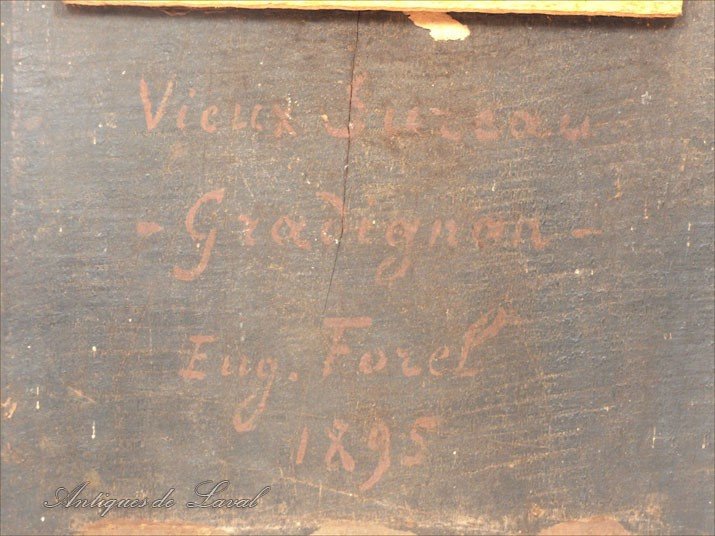 Vieux Sureau
- Gradignan -
Eug. Forel
1895
Antiques de Laval